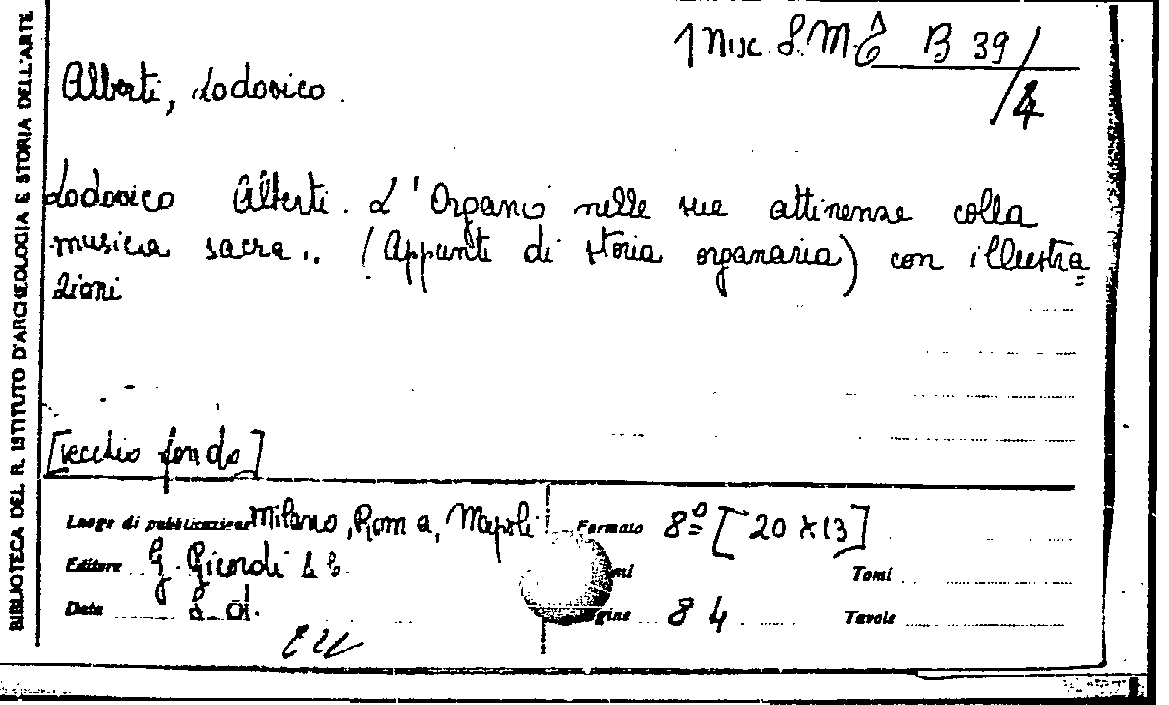 BIBLIOTECA DEL R. ISTITUTO D'ARCHEOLOGIA E STORIA DELL'ARTE
Misc S.M.E B 39/4
Alberti, Lodovico.
Lodovico Alberti. L'Organo nelle sue attinenze colla
musica sacra.. (Appunti di storia organaria) con illustra=
zioni
[vecchio fondo]
Luogo di pubblicazione Milano, Roma, Napoli
Formato 8º [20x13]
Editore G. Ricordi & C.
Tomi
Data s. d.
Pagine 84
Tavole